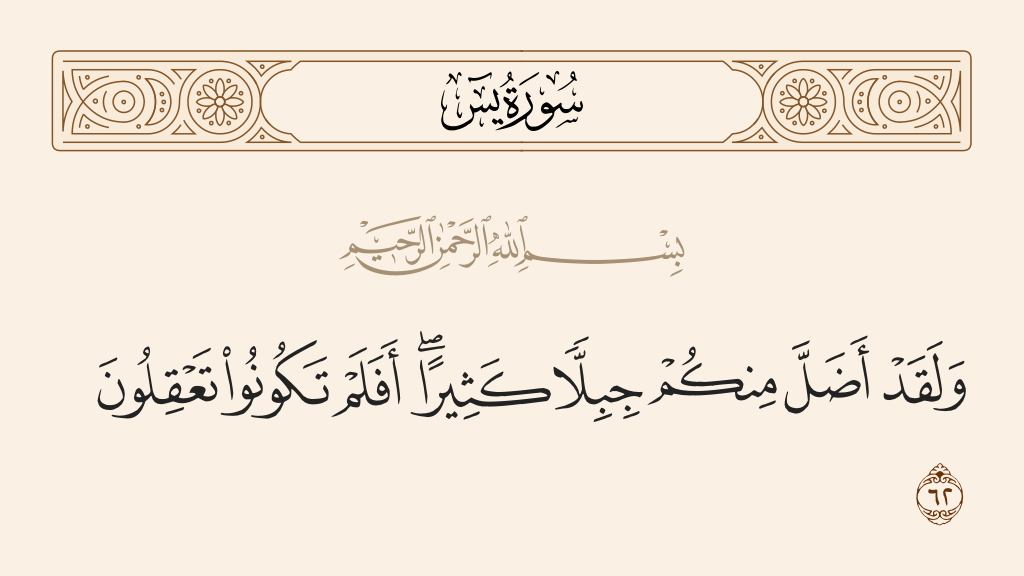 سُورَةُ يسٓ
بِسْمِ ٱللَّهِ ٱلرَّحْمَٰنِ ٱلرَّحِيمِ
وَلَقَدْ أَضَلَّ مِنكُمْ جِبِلًّا كَثِيرًا ۖ أَفَلَمْ تَكُونُوا۟ تَعْقِلُونَ
٦٢